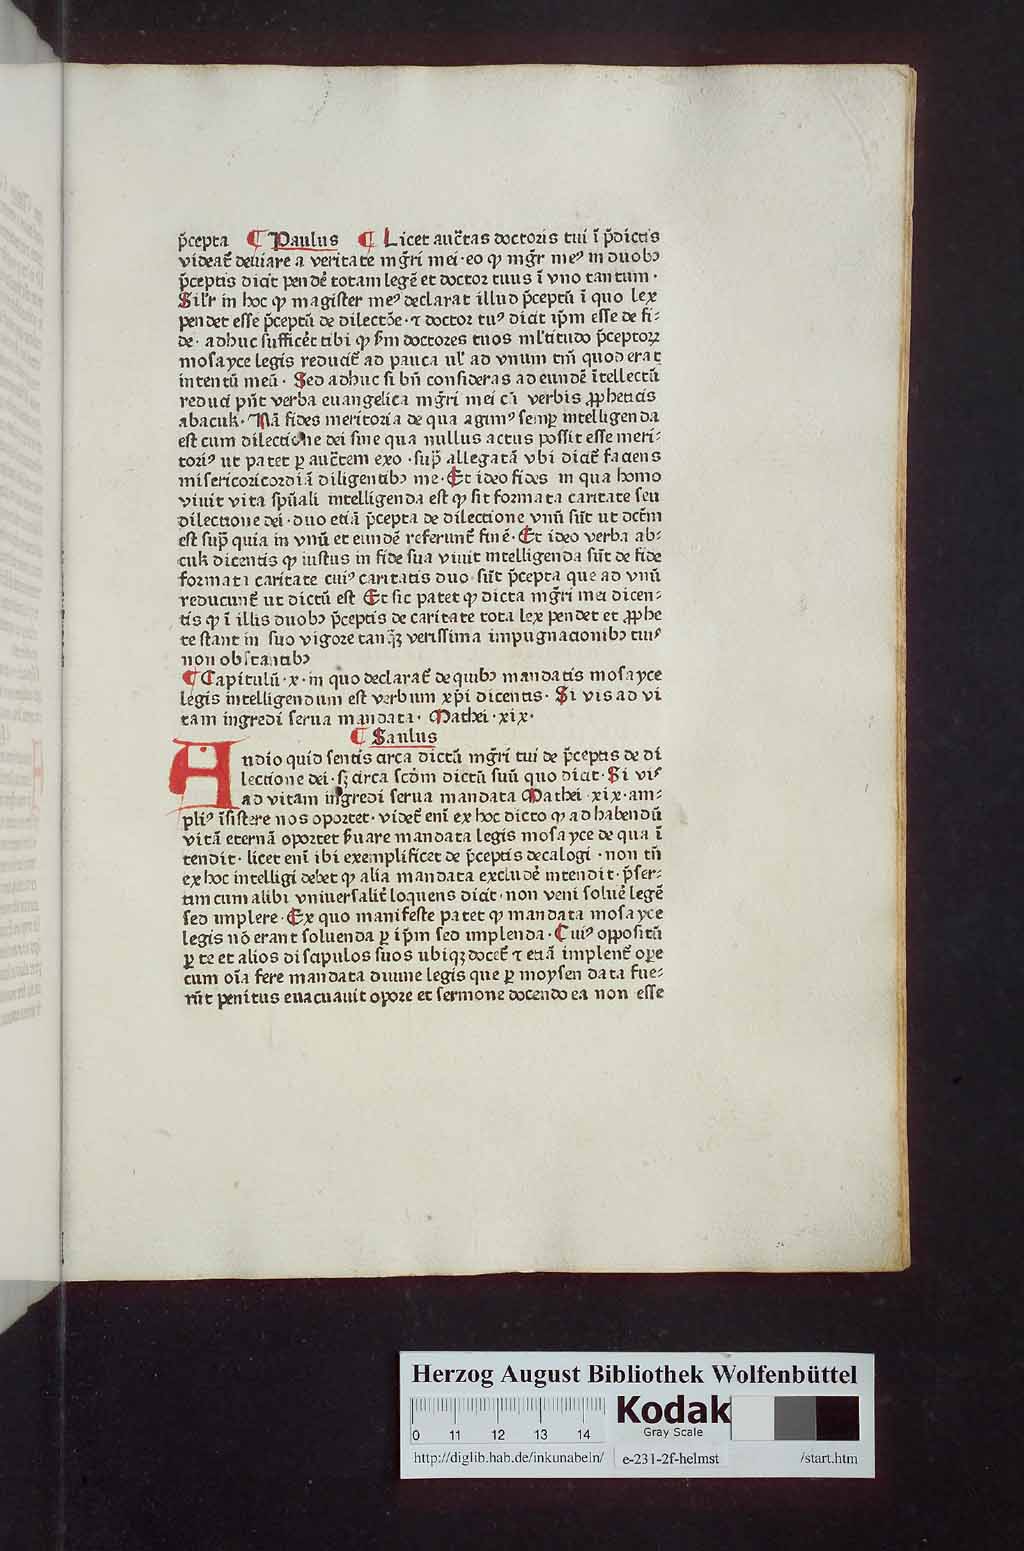 p̃cepta ¶ Paulus ¶ Licet auct̃tas doctoris tui ĩ p̃dictis
videat᷑ deuiare a veritate mgr̃i mei · eo ꝙ mgr̃ meꝰ in duobꝫ
p̃ceptis dicit pende᷑ totam legẽ et doctor tuus ĩ vno tantum ·
Silr̃ in hoc ꝙ magister meꝰ declarat illud p̃ceptũ ĩ quo lex
pendet esse p̃ceptũ de dilectõe · ⁊ doctor tuꝰ dicit ip̃m esse de fi⸗
de · adhuc sufficet᷑ tibi ꝙ s̃m doctores tuos ml̃titudo p̃ceptoꝝ
mosayce legis reducit᷑ ad pauca ul̓ ad vnum tm̃ quod erat
intentũ meũ · Sed adhuc si bñ consideras ad eundẽ ĩtellectũ
reduci pñt verba euangelica mgr̃i mei cũ verbis ꝓpheticis
abacuk · Nã fides meritoria de qua agimꝰ semꝑ intelligenda
est cum dilectione dei sine qua nullus actus possit esse meri⸗
toriꝰ ut patet ꝑ auct̃tem exo · sup̃ allegatã vbi dicit᷑ faciens
misericoricordiã diligentibꝫ me · Et ideo fides in qua homo
viuit vita sp̃uali intelligenda est ꝙ sit formata caritate seu
dilectione dei · duo etiã p̃cepta de dilectione vnũ sũt ut dct̃m
est sup̃ quia in vnũ et eundẽ referunt᷑ finẽ · Et ideo verba ab⸗
cuk dicentis ꝙ iustus in fide sua viuit intelligenda sũt de fide
formati caritate cuiꝰ caritatis duo sũt p̃cepta que ad vnũ
reducunt᷑ ut dictũ est Et sic patet ꝙ dicta mgr̃i mei dicen⸗
tis ꝙ ĩ illis duobꝫ p̃ceptis de caritate tota lex pendet et ꝓphe
te stant in suo vigore tanꝙꝫ verissima impugnacionibꝫ tuiꝰ
non obstantibꝫ
¶ Capitulũ · x · in quo declarat᷑ de quibꝫ mandatis mosayce
legis intelligendum est verbum xp̃i dicentis · Si vis ad vi
tam ingredi serua mandata · Mathei · xix ·
¶ Saulus
Audio quid sentis circa dictũ mgr̃i tui de p̃ceptis de di
lectione dei · sꝫ circa scdm̃ dictũ suũ quo dicit · Si viꝰ
ad vitam ingredi serua mandata Mathei · xix · am⸗
pliꝰ ĩsistere nos oportet · videt᷑ eni᷑ ex hoc dicto ꝙ ad habendũ
vitã eternã oportet s̃uare mandata legis mosayce de qua ĩ
tendit · licet eni᷑ ibi exemplificet de p̃ceptis decalogi · non tñ
ex hoc intelligi debet ꝙ alia mandata excludẽ intendit · p̃ser⸗
tim cum alibi vniuersalit᷑ loquens dicit · non veni solue᷑ legẽ
sed implere · Ex quo manifeste patet ꝙ mandata mosayce
legis nõ erant soluenda ꝑ ip̃m sed implenda · Cuiꝰ oppositũ
ꝑ te et alios discipulos suos ubiqꝫ docet᷑ ⁊ etiã implent᷑ oꝑe
cum oĩa fere mandata diuine legis que ꝑ moysen data fue⸗
rũt penitus euacuauit opore et sermone docendo ea non esse
Herzog August Bibliothek Wolfenbüttel
0 11 12 13 14
Kodak
Gray Scale
http://diglib.hab.de/inkunabeln/ e-231-2f-helmst /start.htm